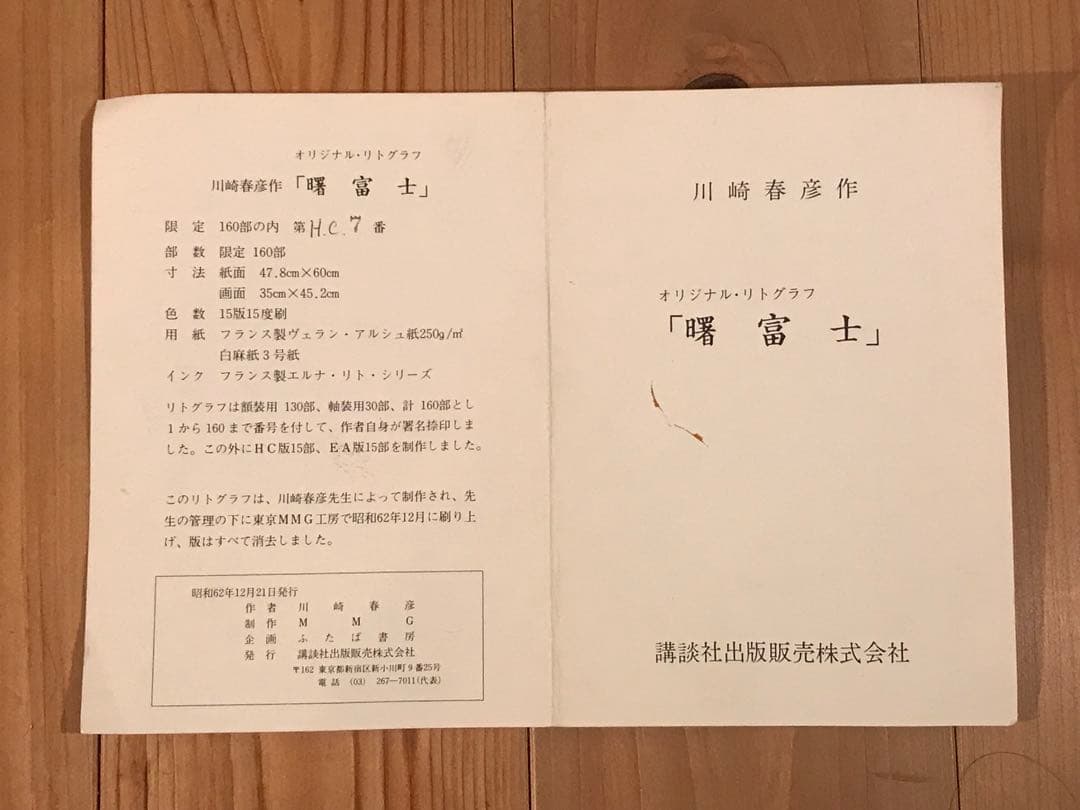 オリジナル・リトグラフ
川崎春彦作「曙富士」
限定 160部の内 第H.C.7番
部数 限定 160部
寸法 紙面 47.8cm×60cm
画面 35cm×45.2cm
色数 15版15度刷
用紙 フランス製ヴェラン・アルシュ紙250g/㎡
白麻紙3号紙
インク フランス製エルナ・リト・シリーズ
リトグラフは額装用 130部、軸装用30部、計 160部とし
1から160まで番号を付して、作者自身が署名捺印しま
した。この外にHC版15部、EA版15部を制作しました。
このリトグラフは、川崎春彦先生によって制作され、先
生の管理の下に東京MMG工房で昭和62年12月に刷り上
げ、版はすべて消去しました。
昭和62年12月21日発行
作者 川崎春彦
制作 MMG
企画 ふたば書房
発行 講談社出版販売株式会社
〒162 東京都新宿区新小川町9番25号
電話 (03) 267-7011(代表)
川崎春彦作
オリジナル・リトグラフ
「曙富士」
講談社出版販売株式会社